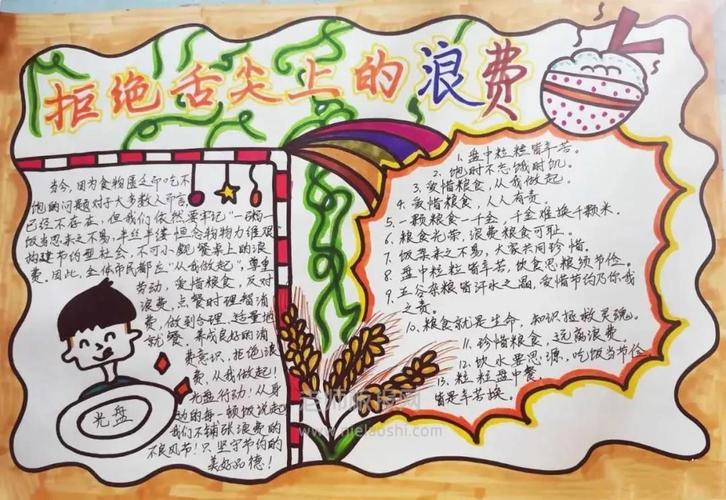 拒绝舌尖上的浪费
当今,因为食物匮乏而吃不
饱的问题对于大多数人而言,
已经不存在,但我们依然要牢记"一粥一
饭当思来之不易,半丝半缕恒念物力维艰
构建节约型社会,不可小觑餐桌上的浪
费。因此,全体市民都在"从我做起",尊重
劳动,爱惜粮食,反对
浪费,点餐时理智消
费,做到合理、适量地
就餐,养成良好的消
费意识,拒绝浪
费,从我做起!
光盘行动!从身
边的每一顿饭说起
我们不铺张浪费的
不良风节!只坚守节约的
美好品德!
光盘
1. 盘中粒粒皆辛苦。
2. 饱时不忘饿时饥。
3. 爱惜粮食,从我做起。
4. 爱惜粮食,人人有责。
5. 一颗粮食一千金,千金难换千颗米。
6. 粮食光荣,浪费粮食可耻。
7. 饭菜来之不易,大家共同珍惜。
8. 盘中粒粒皆辛苦,饮食思粮须节俭。
9. 五谷杂粮皆汗水之滴,爱惜节约乃你我
之责。
10. 粮食就是生命,知识拯救灵魂。
11. 珍惜粮食,远离浪费。
12. 饮水要思源,吃饭当节俭
13. 粒粒盘中餐,
皆是辛苦换。
www.nielaoshi.com